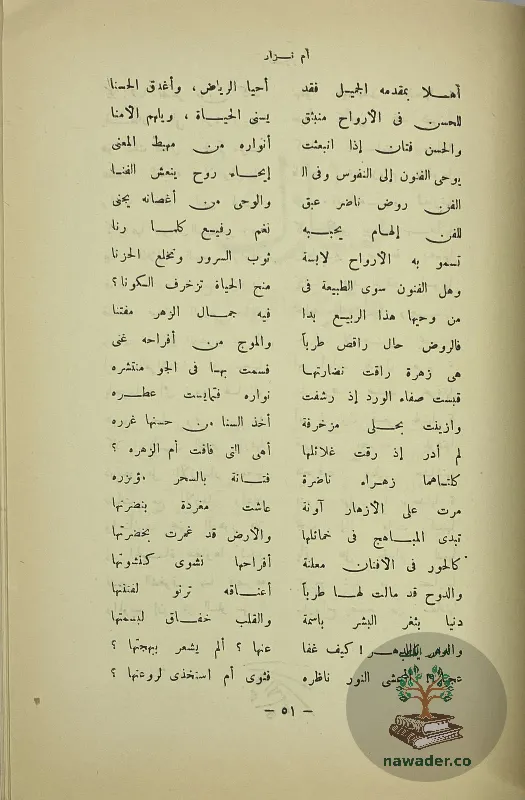 أم نزار
أهلا بمقدمه الجميل فقد أحيا الرياض، وأغدق الحسنا
للحسن فى الارواح منبثق يبنى الحياة، ويلهم الامنا
والحسن فتان إذا انبعثت أنواره من مهبط المعنى
يوحى الفنون إلى النفوس وفى ال إيحاء روح ينعش الفنا
الفن روض ناضر عبق والوحى من أغصانه يجنى
للفن إلهام يحببه نغم رفيع كلما رنا
تسمو به الارواح لابسة ثوب السرور وتخلع الحزنا
وهل الفنون سوى الطبيعة فى منح الحياة تزخرف السكونا؟
من وحيها هذا الربيع بدا فيه جمال الزهر مفتنا
فالروض حال راقص طرباً والموج من أفراحه غنى
هى زهرة راقت نضارتها فسمت بها فى الجو منتشره
قبست صفاء الورد إذ رشفت نواره فتمايست عطره
وازينت بحلى مزخرفة أخذ السنا من حسنها غرره
لم أدر إذ رقت غلائلها أهى التى فاقت أم الزهره ؟
كلتاهما زهراء ناضرة فتانة بالسحر مؤتزره
مرت على الازهار آونة عاشت مغردة بنضرتها
تبدى المباهج فى خمائلها والأرض قد غمرت بخضرتها
كالحور فى الافنان معلنة أفراحها نشوى كنشوتها
والدوح قد مالت لها طرباً أعناقه ترنو لفتنتها
دنيا بثغر البشر باسمة والقلب خفاق لبسمتها
! كيف غفا عنها ؟ ألم يشعر ببهجتها ؟
النور ناظره فثوى أم استخذى لروعتها ؟
— ٥١ —
nawader.co